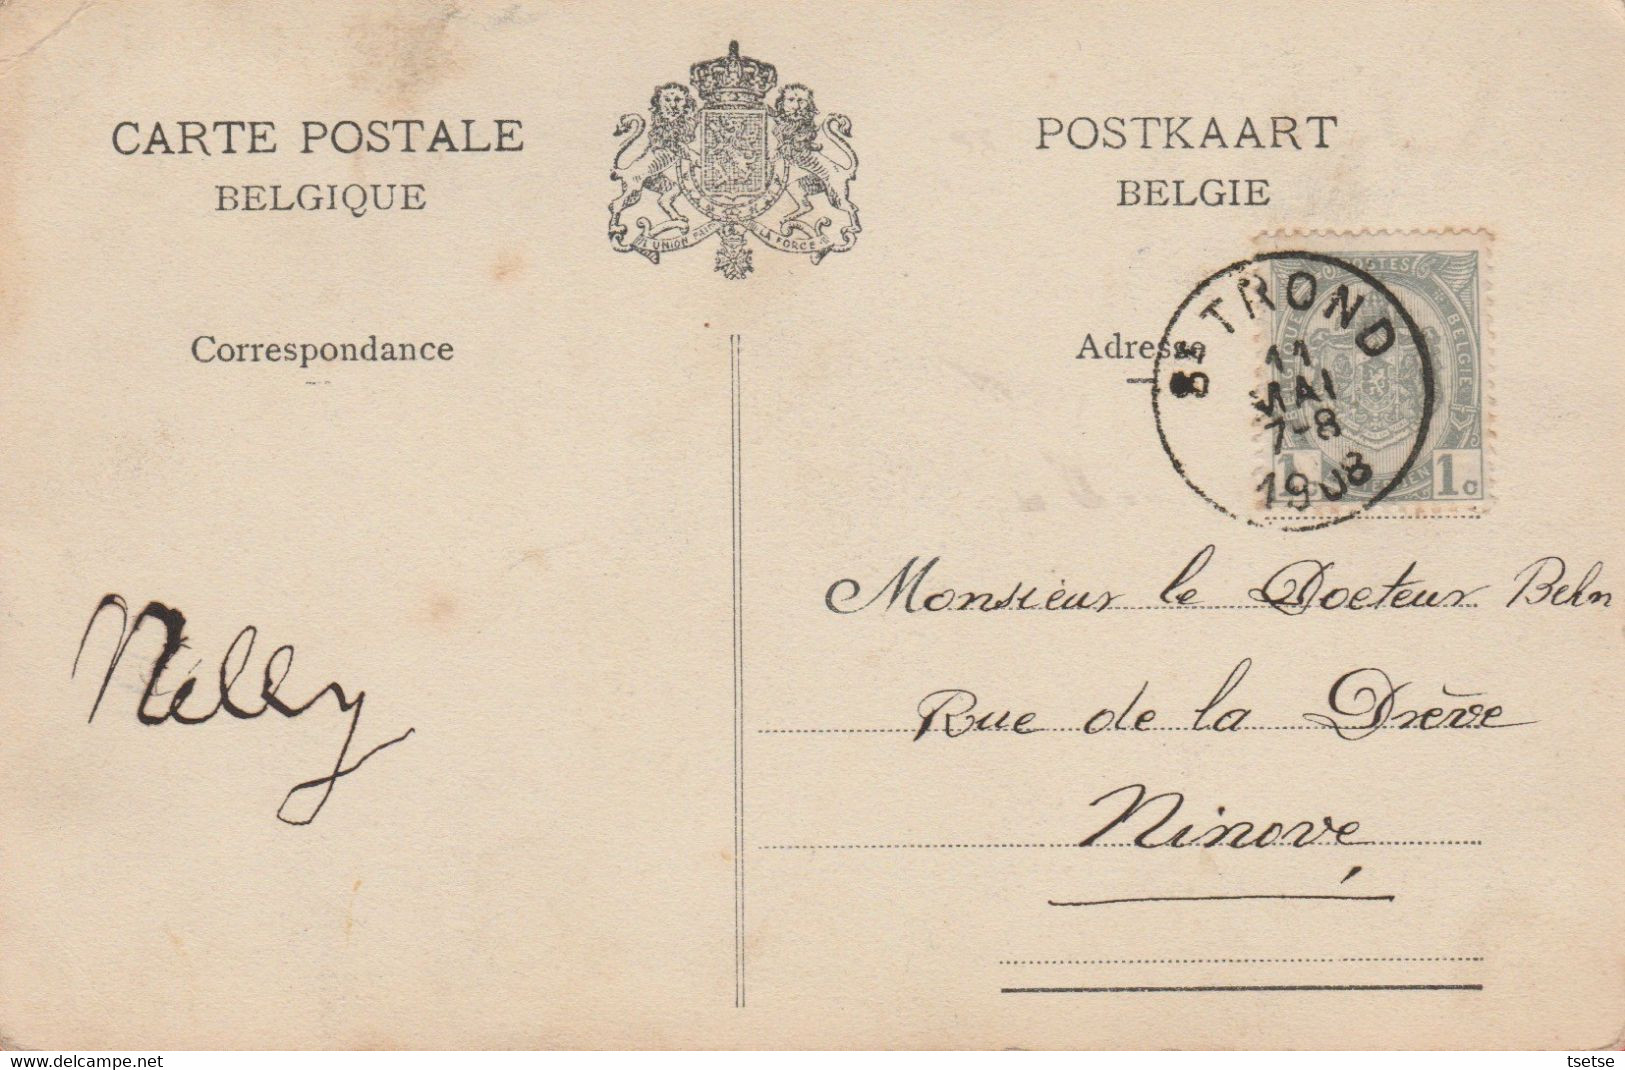 CARTE POSTALE
BELGIQUE
L'UNION FAIT LA FORCE
POSTKAART
BELGIE
Correspondance
Adresse
POSTES
BELGIQUE
BELGIË
1 c 1 c
ST TROND
11
MAI
7-8
1908
Nelly
Monsieur le Docteur Behn
Rue de la Drève
Ninove
delcampe.net
tsetse